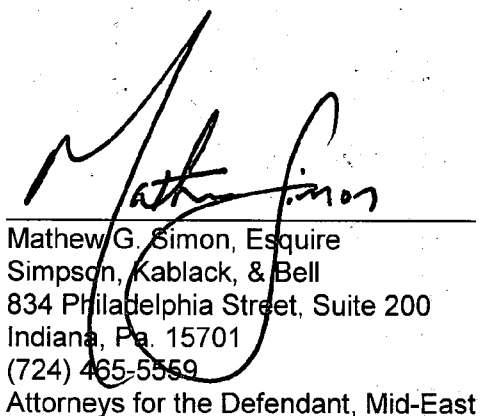 Mathew Simon
Mathew G. Simon, Esquire
Simpson, Kablack, & Bell
834 Philadelphia Street, Suite 200
Indiana, Pa. 15701
(724) 465-5559
Attorneys for the Defendant, Mid-East